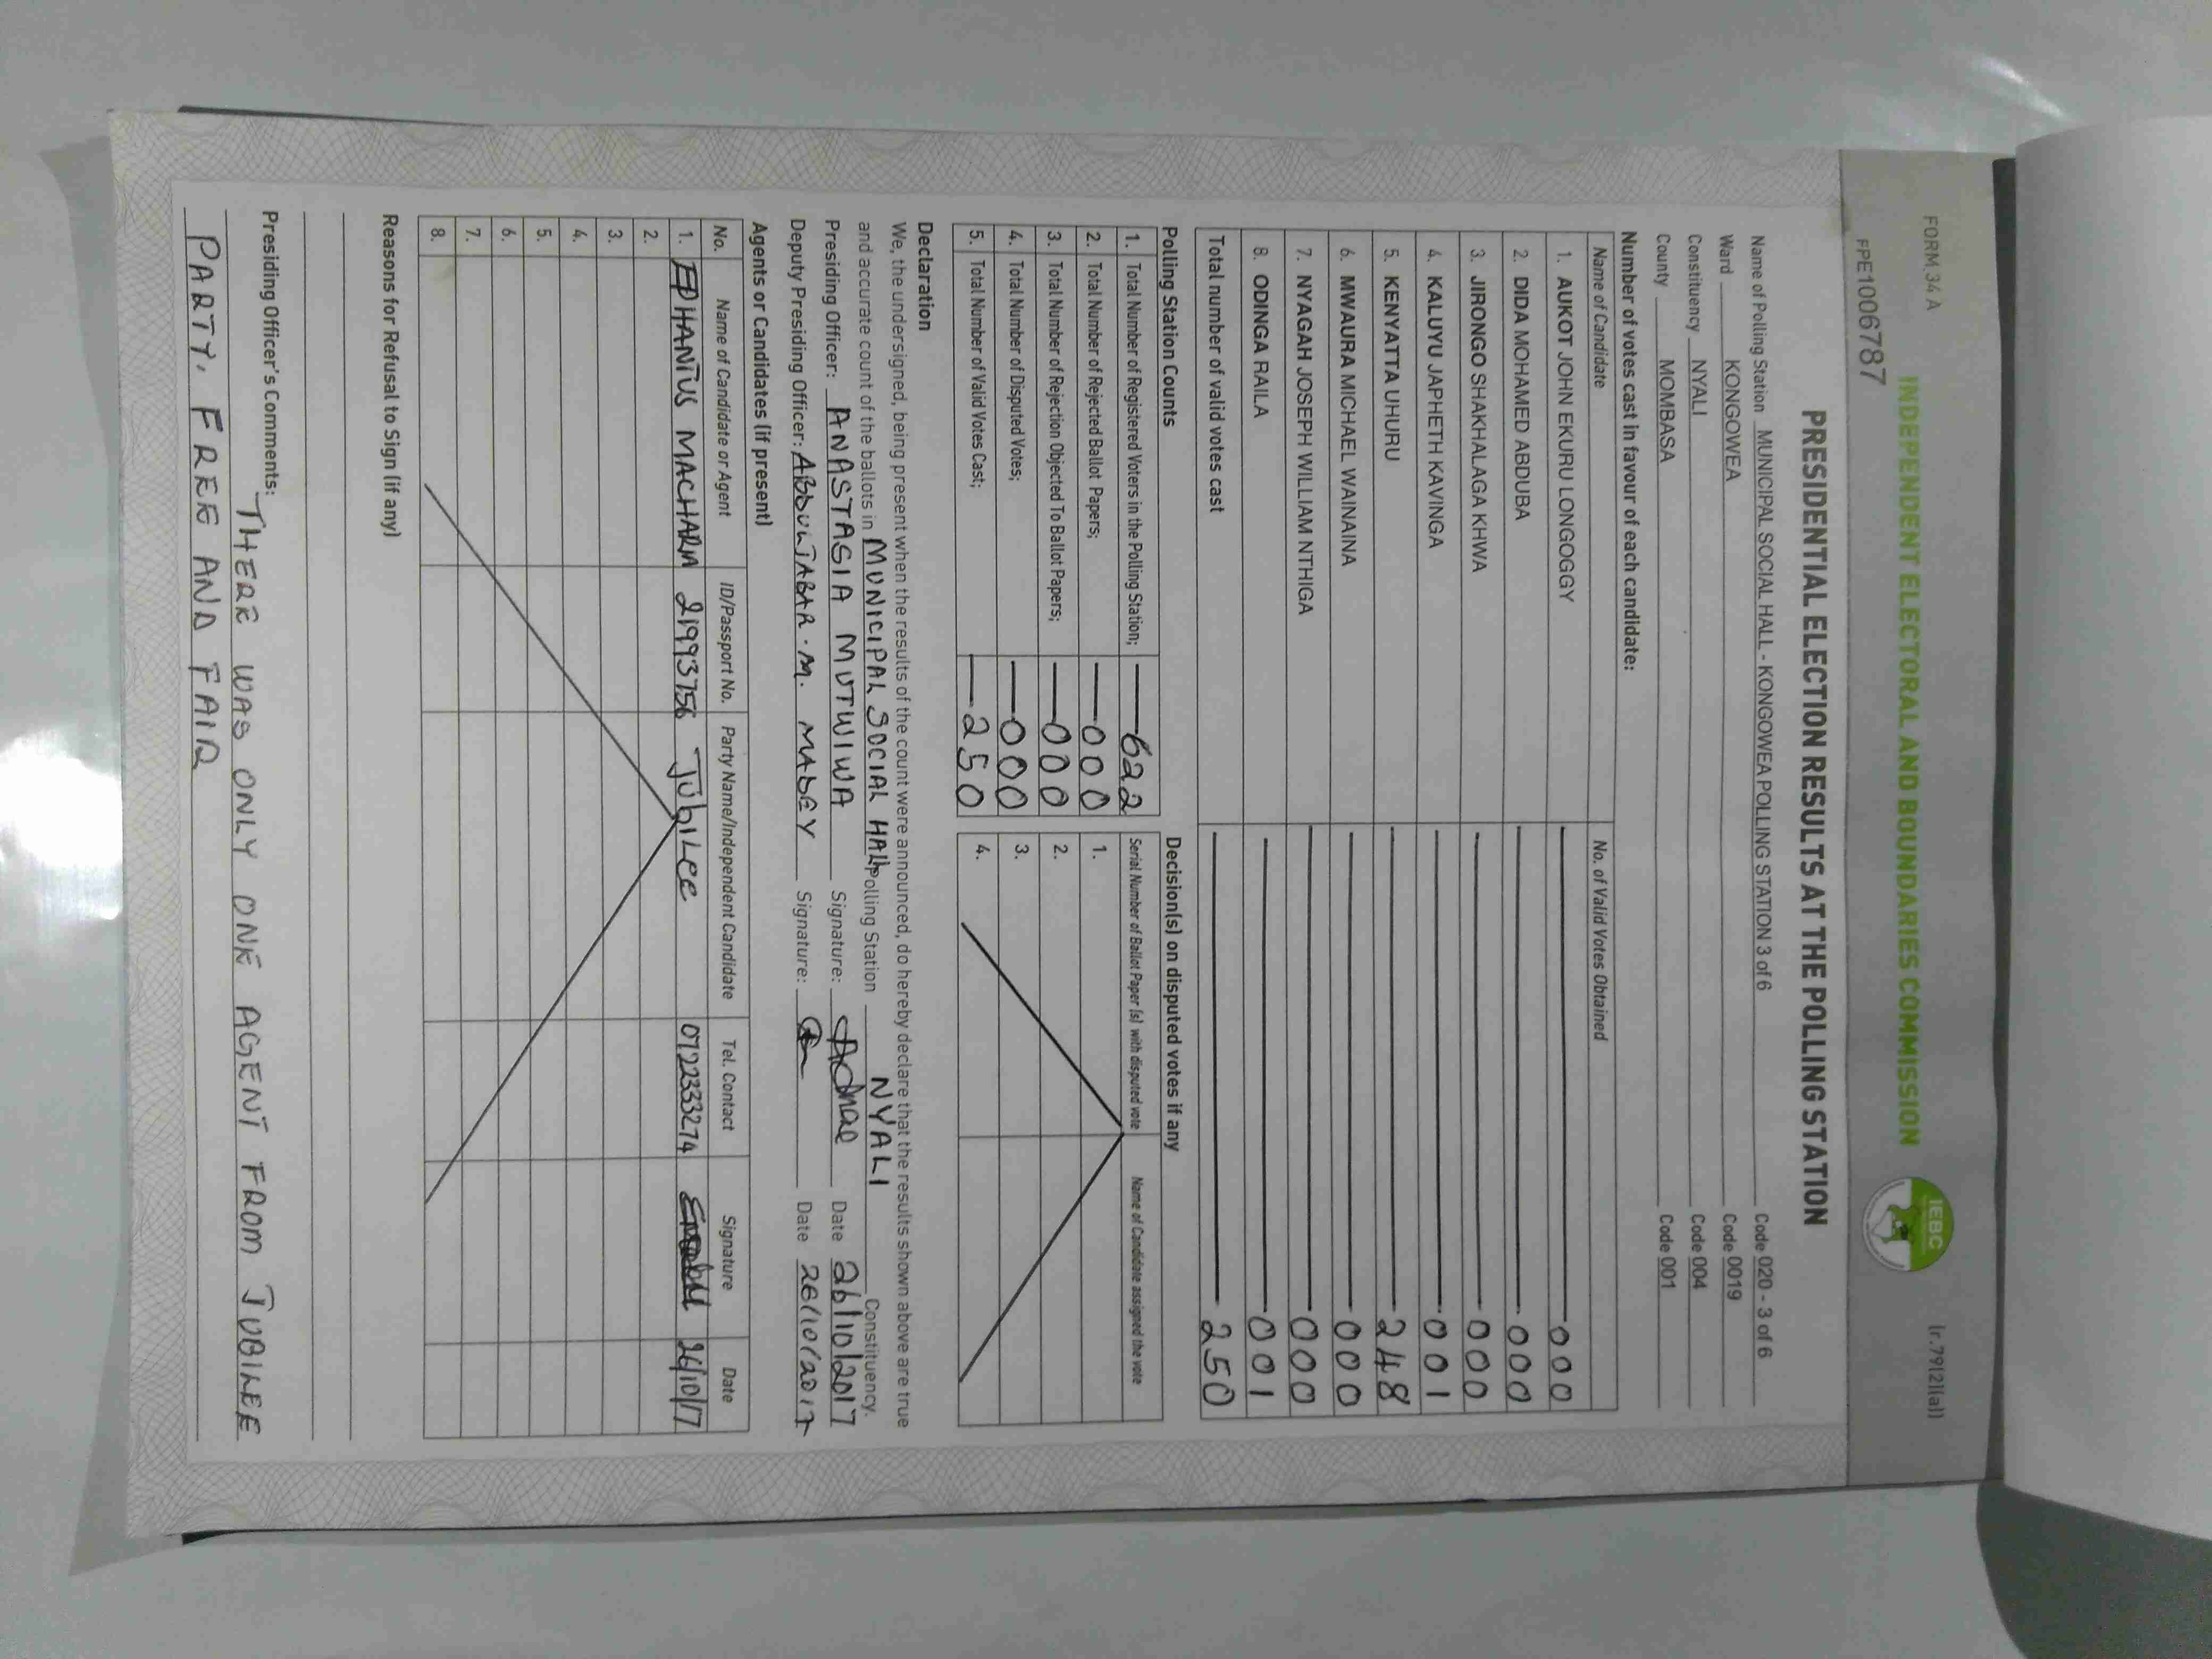 FORM 34 A
(r.79(2)(a))
FPE1006787
INDEPENDENT ELECTORAL AND BOUNDARIES COMMISSION
IEBC
PRESIDENTIAL ELECTION RESULTS AT THE POLLING STATION
Name of Polling Station MUNICIPAL SOCIAL HALL - KONGOWEA POLLING STATION 3 of 6 Code 020 - 3 of 6
Ward KONGOWEA Code 0019
Constituency NYALI Code 004
County MOMBASA Code 001
Number of votes cast in favour of each candidate:
Name of Candidate No. of Valid Votes Obtained
1. AUKOT JOHN EKURU LONGOGGY 000
2. DIDA MOHAMED ABDUBA 000
3. JIRONGO SHAKHALAGA KHWA 000
4. KALUYU JAPHETH KAVINGA 001
5. KENYATTA UHURU 248
6. MWAURA MICHAEL WAINAINA 000
7. NYAGAH JOSEPH WILLIAM NTHIGA 000
8. ODINGA RAILA 001
Total number of valid votes cast 250
Polling Station Counts
1. Total Number of Registered Voters in the Polling Station; 622
2. Total Number of Rejected Ballot Papers; 000
3. Total Number of Rejection Objected To Ballot Papers; 000
4. Total Number of Disputed Votes; 000
5. Total Number of Valid Votes Cast; 250
Decision(s) on disputed votes if any
Serial Number of Ballot Paper (s) with disputed vote Name of Candidate assigned the vote
1.
2.
3.
4.
Declaration
We, the undersigned, being present when the results of the count were announced, do hereby declare that the results shown above are true
and accurate count of the ballots in MUNICIPAL SOCIAL HALL Polling Station NYALI Constituency.
Presiding Officer: ANASTASIA MUTWIWA Signature: Date 26/10/2017
Deputy Presiding Officer: ABDULJABAR . M. MADEY Signature: Date 26/10/2017
Agents or Candidates (if present)
No. Name of Candidate or Agent ID/Passport No. Party Name/Independent Candidate Tel. Contact Signature Date
1. EPHANTUS MACHARIA 21993756 JubiLee 0722333274 26/10/17
2.
3.
4.
5.
6.
7.
8.
Reasons for Refusal to Sign (if any)
Presiding Officer's Comments: THERE WAS ONLY ONE AGENT FROM JUBILEE
PARTY, FREE AND FAIR